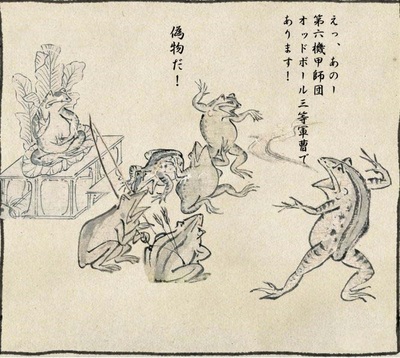 えっ、あのー
第六機甲師団
オッドボール三等軍曹で
あります！
偽物だ！